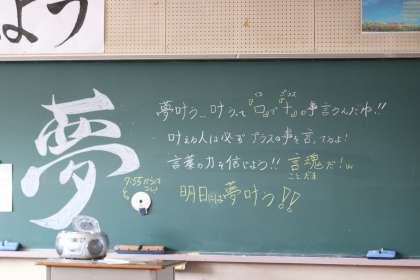 よう
夢
夢叶う… 叶うって"口"で"十"の事言うんだね!!
プラス
叶える人は必ずプラスの事を言ってるよ!
言葉の力を信じよう!! 言魂だ!w
ことだま
7:55
明日には夢叶う!!